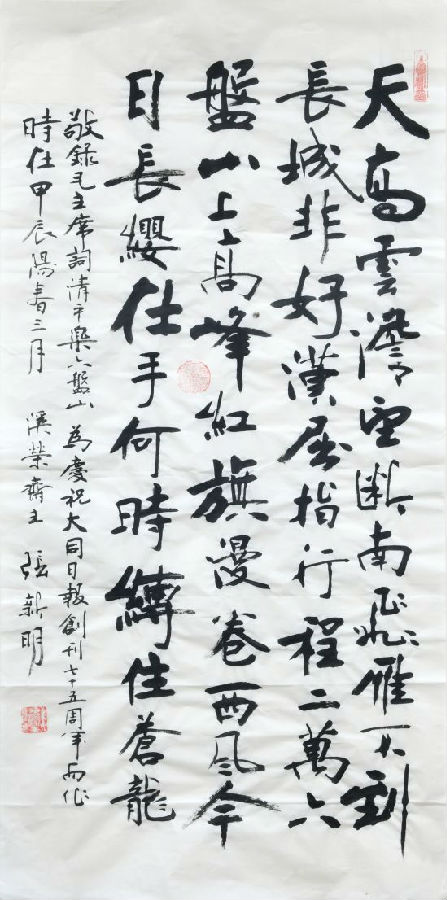 天高雲澹望斷南飛雁不到
長城非好漢屈指行程二萬六
盤山上高峰紅旗漫卷西風今
日長纓在手何時縛住蒼龍
敬錄毛主席詞清平樂六盤山 為慶祝大同日報創刊七十五周年而作
時在甲辰陽春三月 榮齋主 張新明